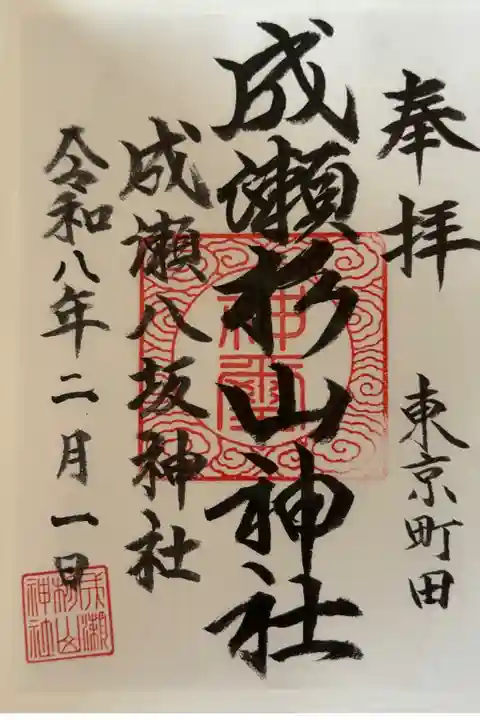 奉拝
東京町田
成瀬杉山神社
成瀬八坂神社
令和八年二月一日
成瀬
杉山
神社